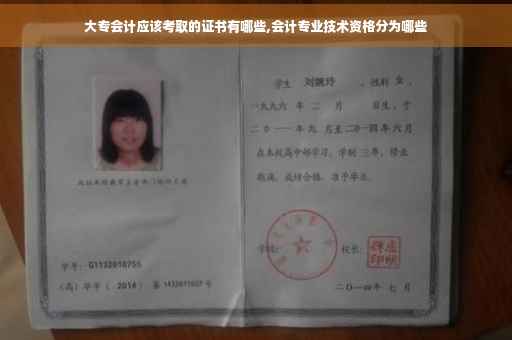 大专会计应该考取的证书有哪些,会计专业技术资格分为哪些
学生 刘婉玲 ,性别 女 ,
一九九六 年 二 月 日生,于
二〇一一年九 月至二〇一四年六月
在本校高中部学习,学制 三年,修业
期满,成绩合格,准予毕业。
学校: 校长:
学号: G1132010755
(高)毕字( 2014 )第 1432011027 号
二〇一四年 七 月